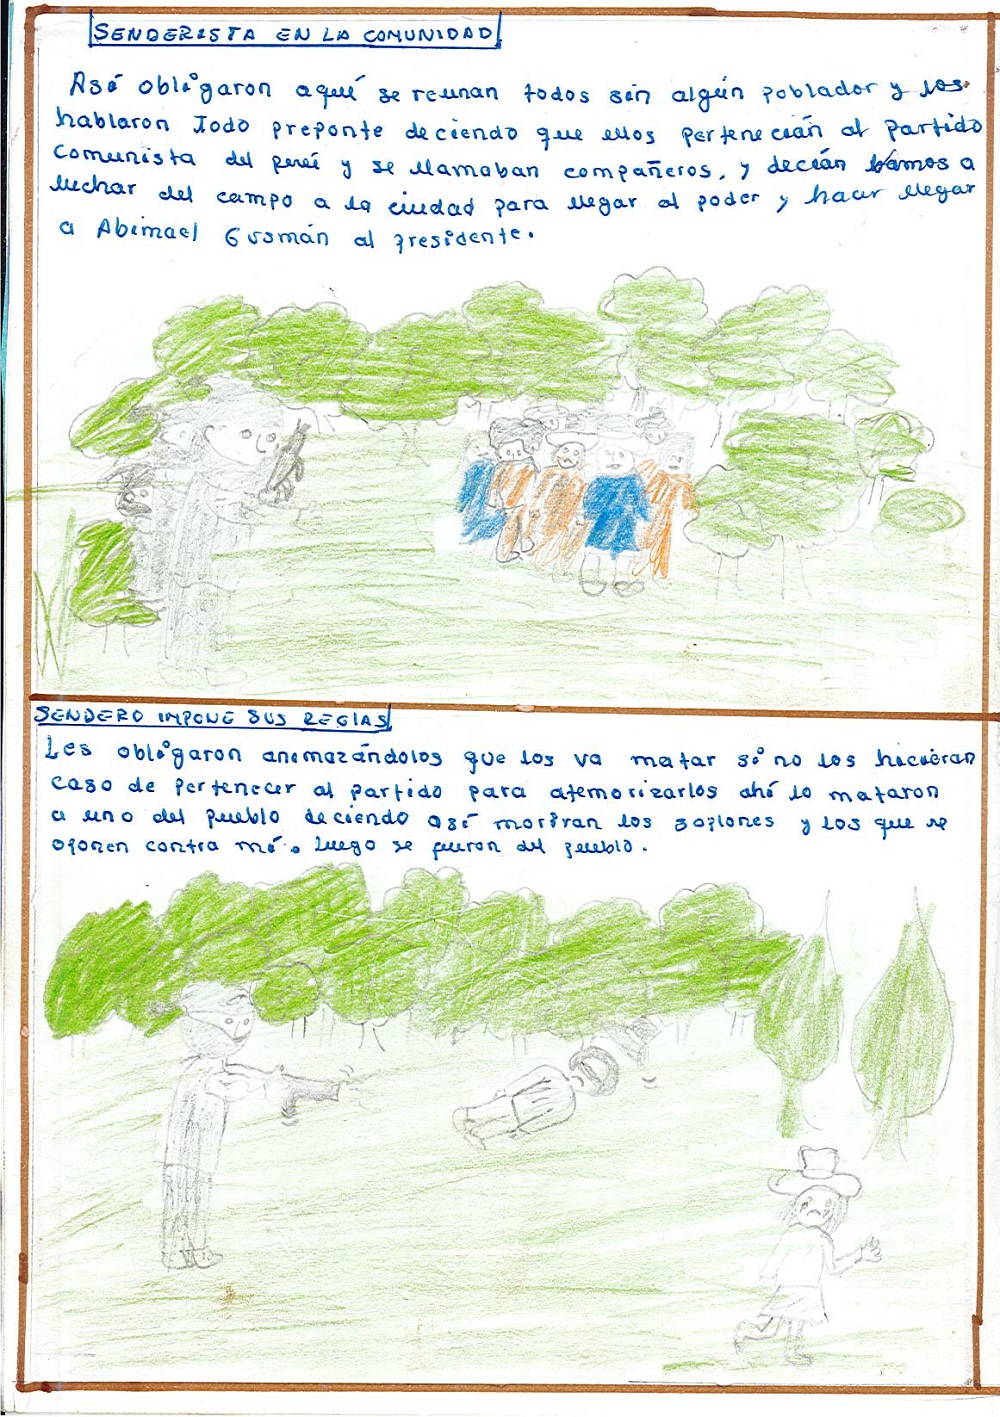 SENDERISTA EN LA COMUNIDAD
Asé obligaron aqué se reunan todos sin algún poblador y los
hablaron Todo preponte deciendo que ellos pertenecián al partido
comunista del perú y se llamaban compañeros, y decián bamos a
luchar del campo a la ciudad para llegar al poder y hacer llegar
a Abimael Gusmán al presidente.
SENDERO IMPONE SUS REGLAS
Les obligaron anemazándolos que los va matar si no los hiciéran
caso de pertenecer al partido para atemorizarlos ahí lo mataron
a uno del pueblo deciendo asé moriran los soplones y los que se
oponen contra mé. luego se fueron del pueblo.